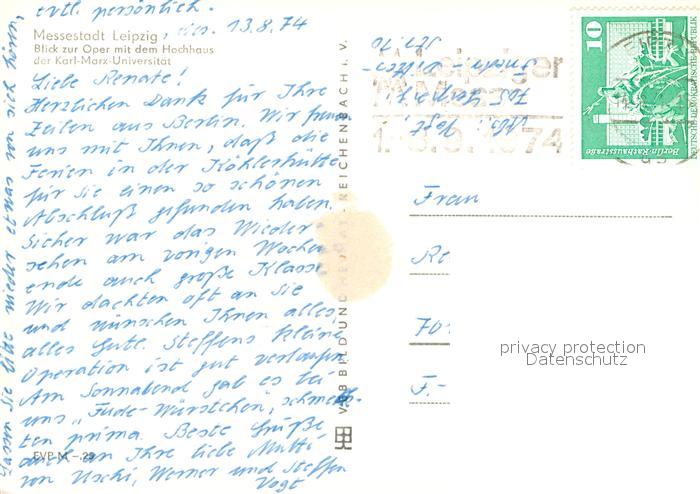 evtl. persönlich.
Messestadt Leipzig, 13.8.74
Blick zur Oper mit dem Hochhaus
der Karl-Marx-Universität
Liebe Renate!
Herzlichen Dank für Ihre
Zeilen aus Berlin. Wir freuen
uns mit Ihnen, daß die
Ferien in der Köhlerhütte
für Sie einen so schönen
Abschluß gefunden haben.
Sicher war das Wieder-
sehen am vorigen Wochen
ende auch große Klasse
Wir dachten oft an Sie
und wünschen Ihnen alles,
alles Gute. Steffens kleine
Operation ist gut verlaufen
Am Sonnabend gab es bei
uns „Jude-Würstchen“, schmeck-
ten prima. Beste Grüße
auch an Ihre liebe Mutti
von Uschi, Werner und Steffen
Vogt
Lassen Sie bitte wieder etwas von sich hören,
EVP M -.29
VEB BILD UND HEIMAT · REICHENBACH i. V.
Leipziger
Messe
1.-8.9.1974
Abs.: Vogt,
705 Leipzig
10
Berlin-Rathausstraße
DEUTSCHE DEMOKRATISCHE REPUBLIK
Frau
Re
70
F.-
privacy protection
Datenschutz